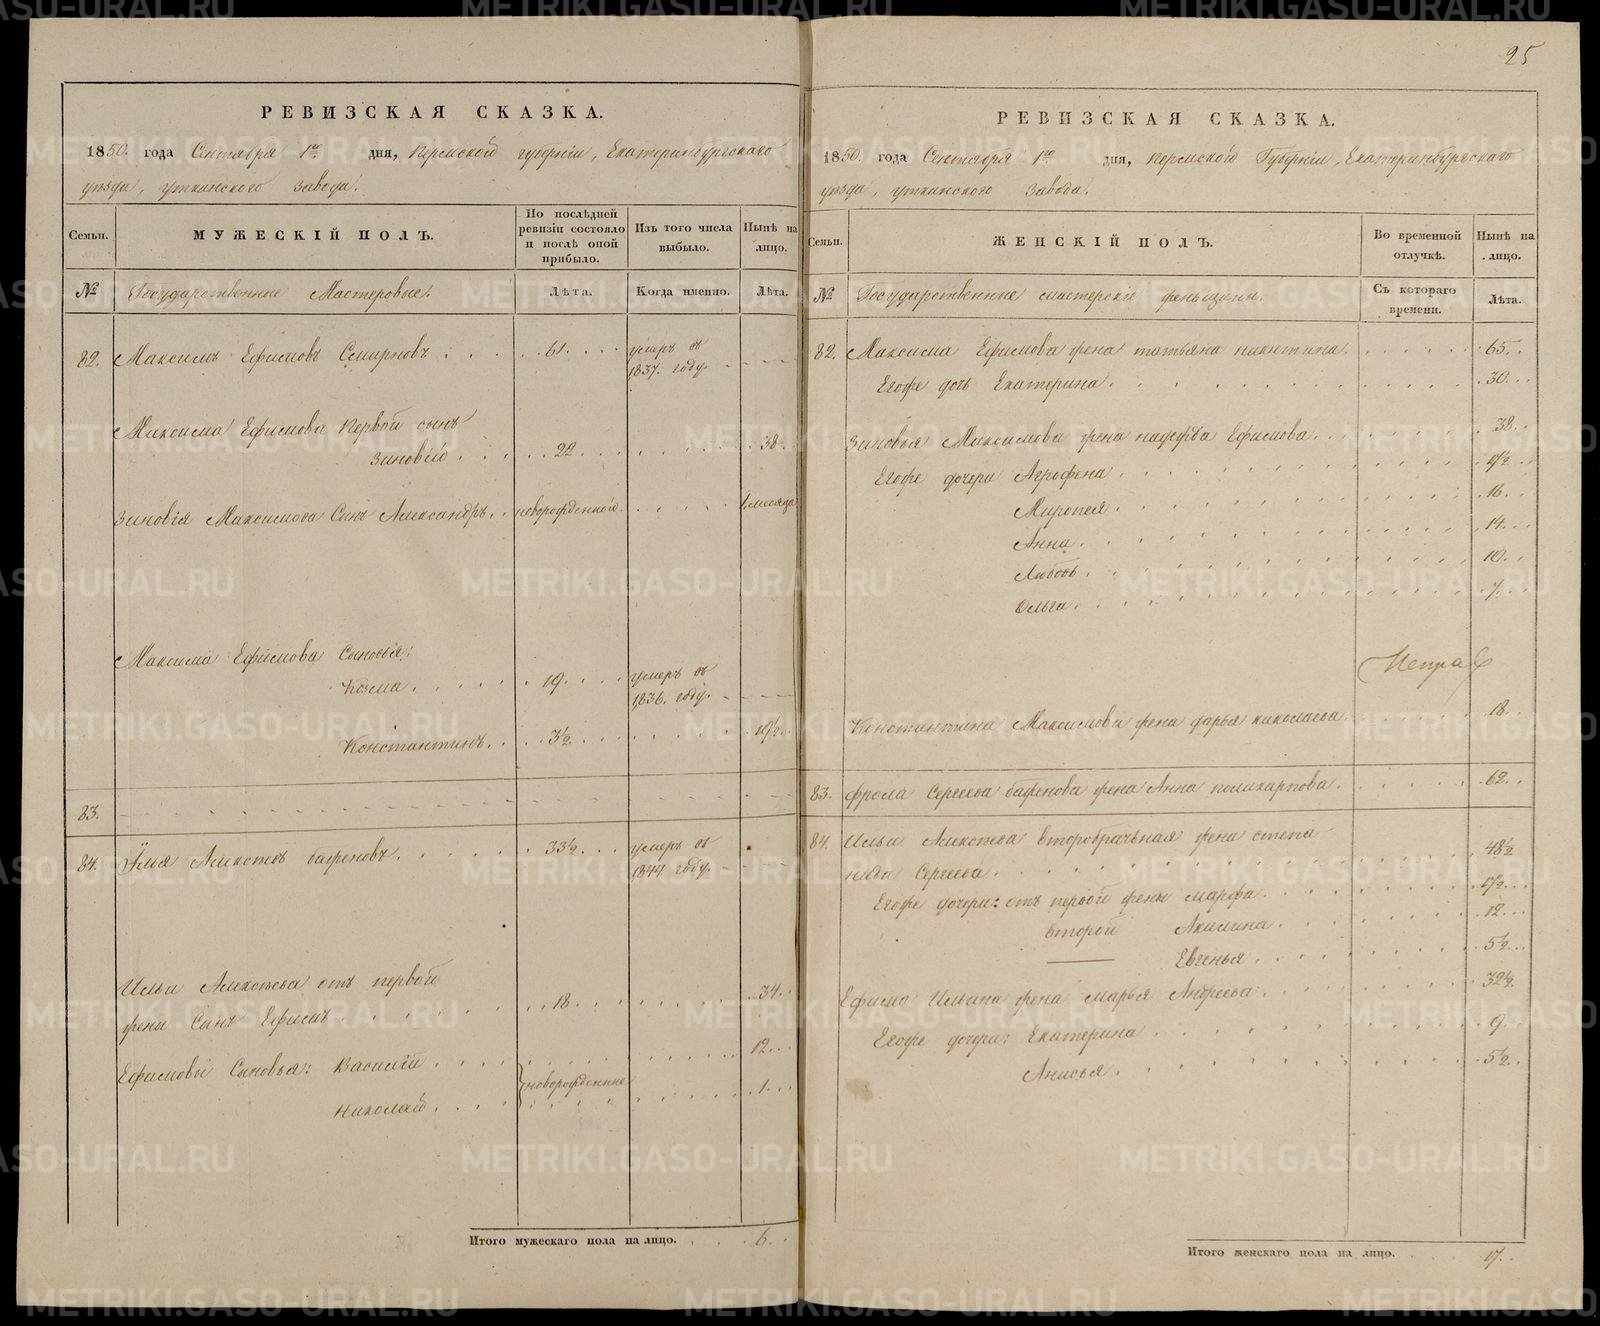 25
РЕВИЗСКАЯ СКАЗКА.
1850. года Сентября 1го дня, Пермской губерніи, Екатеринбургскаго
уѣзда, уткинского завода.
Семьи.
МУЖЕСКІЙ ПОЛЪ.
По послѣдней ревизіи состояло и послѣ оной прибыло.
Изъ того числа выбыло.
Нынѣ на лицо.
№
Государственные Мастеровые.
Лѣта.
Когда именно.
Лѣта.
82. Максимъ Ефимовъ Смирновъ . . . . 61. . . . умеръ въ 1837. году.
Максима Ефимова первой сынъ
Зиновій . . . . 22. . . . 38.
Зиновія Максимова Сынъ Александръ. . новорожденный. . . . . 1. месяца
Максима Ефимова Сыновья:
Козма . . . . 19. . . . умеръ въ 1836. году.
Константинъ. . . . 3½. . . . 19½. .
83.
84. Илья Алексѣевъ баженовъ. . . . 33½. . . умеръ въ 1844. году.
Ильи Алексѣева отъ первой
жены Сынъ Ефимъ . . . . 18. . . . 34. .
Ефимовы Сыновья: Василій . . . . 12. .
новорожденные
Николай . . . . 1. . .
Итого мужескаго пола на лицо. . . . 6. .
РЕВИЗСКАЯ СКАЗКА.
1850. года Сентября 1го дня, Пермской Губерніи, Екатеринбургскаго
уѣзда, уткинского завода.
Семьи.
ЖЕНСКІЙ ПОЛЪ.
Во временной отлучкѣ.
Нынѣ на лицо.
№
Государственные мастерскіе женщины.
Съ котораго времени.
Лѣта.
82. Максима Ефимова жена татьяна никитина. . . . 65. .
Егоже дочь Екатерина . . . . 30. . .
Зиновья Максимова жена надежда Ефимова . . . . 38. . .
Егоже дочери Агрофена . . . . 17½. .
Миропея . . . . 16. . .
Анна . . . . 14. . .
Любовь . . . . 10. . .
Ольга . . . . 7. . .
Константина Максимова жена дарья николаева . . . . 18. . .
83. Фрола Сергеева баженова жена Анна поликарпова. . . . 62. .
84. Ильи Алексѣева второбрачьная жена степа
нида Сергеева . . . . 48½
Егоже дочери: отъ первой жены марфа . . . . 17½. .
второй Акилина . . . . 12. . .
Евгенья . . . . 5½. .
Ефима Ильина жена марья Андреева . . . . 32½.
Егоже дочери: Екатерина . . . . 9. . .
Анисья . . . . 5½. .
Итого женскаго пола на лицо. . . . 17. .
METRIKI.GASO-URAL.RU